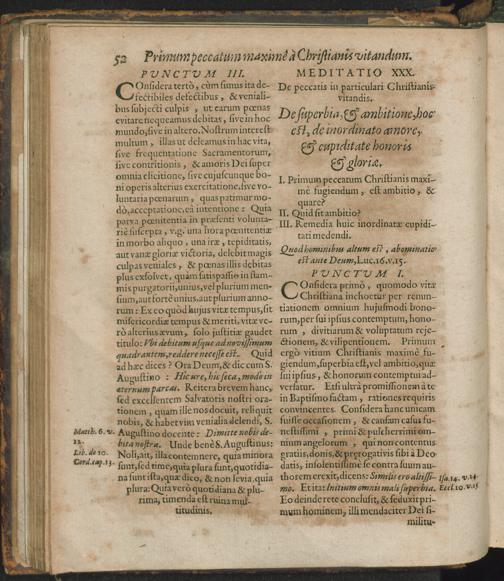 52 Primum peccatum maximè à Christianis vitandum.
PVNCTVM III.
COnsidera tertò, cùm simus ita de-
fectibiles defectibus, & veniali-
bus subjecti culpis, ut earum pœnas
evitare nequeamus debitas, sive in hoc
mundo, sive in altero. Nostrum interest
multum, illas ut deleamus in hac vita,
sive frequentatione Sacramentorum,
sive contritionis, & amoris Dei super
omnia elicitione, sive cujuscunque bo-
ni operis alterius exercitatione, sive vo-
luntaria pœnarum, quas patimur mo-
dò, acceptatione, eâ intentione: Quia
parva pœnitentia in præsenti volunta-
riè suscepta, v.g. una hora pœnitentiæ
in morbo aliquo, una iræ, tepiditatis,
aut vanæ gloriæ victoria, delebit magis
culpas veniales, & pœnas illis debitas
plus exsolvet, quàm satispassio in flam-
mis purgatorii, unius, vel plurium men-
sium, aut fortè unius, aut plurium anno-
rum: Ex eo quòd hujus vitæ tempus, sit
misericordiæ tempus & meriti, vitæ ve-
rò alterius ævum, solo justitiæ gaudet
titulo: Vbi debitum usque ad novissimum
quadrantem, reddere necesse est. Quid
ad hæc dices? Ora Deum, & dic cum S.
Augustino: Hic ure, hic seca, modo in
æternum parcas. Reitera brevem hanc,
sed excellentem Salvatoris nostri ora-
tionem, quam ille nos docuit, reliquit
nobis, & habet vim venialia delendi, S.
Augustino docente: Dimitte nobis de-
bita nostra. Unde benè S. Augustinus:
Noli, ait, illa contemnere, quia minora
sunt, sed time, quia plura sunt, quotidia-
na sunt ista, quæ dico, & non levia, quia
plura: Quia verò quotidiana & plu-
rima, timenda est ruina mul-
titudinis.
Matth. 6. v.
12.
Lib. de 10.
Cord. cap. 13.
MEDITATIO XXX.
De peccatis in particulari Christianis
vitandis.
De superbia, & ambitione, hoc
est, de inordinato amore,
& cupiditate honoris
& gloriæ.
I. Primum peccatum Christianis maxi-
mè fugiendum, est ambitio, &
quare?
II. Quid sit ambitio?
III. Remedia huic inordinatæ cupidi-
tati medendi.
Quod hominibus altum est, abominatio
est ante Deum, Luc.16.v.15.
PVNCTVM I.
COnsidera primò, quomodo vita
Christiana inchoetur per renun-
tiationem omnium hujusmodi bono-
rum, per sui ipsius contemptum, hono-
rum, divitiarum & voluptatum reje-
ctionem, & vilipensionem. Primum
ergò vitium Christianis maximè fu-
giendum, superbia est, vel ambitio, quæ
sui ipsius, & honorum contemptui ad-
versatur. Etsi ultrà promissionem à te
in Baptismo factam, rationes requiris
convincentes. Considera hanc unicam
fuisse occasionem, & causam casus fu-
nestissimi, primi & pulcherrimi om-
nium angelorum, qui non contentus
gratiis, donis, & prærogativis sibi à Deo
datis, insolentissimè se contra suum au-
thorem erexit, dicens: Similis ero altissi-
mo. Et ita: Initium omnis mali superbia.
Eo deinde rete conclusit, & seduxit pri-
mum hominem, illi mendaciter Dei si-
militu-
Isa.14. v.14.
Eccl.10.v.15